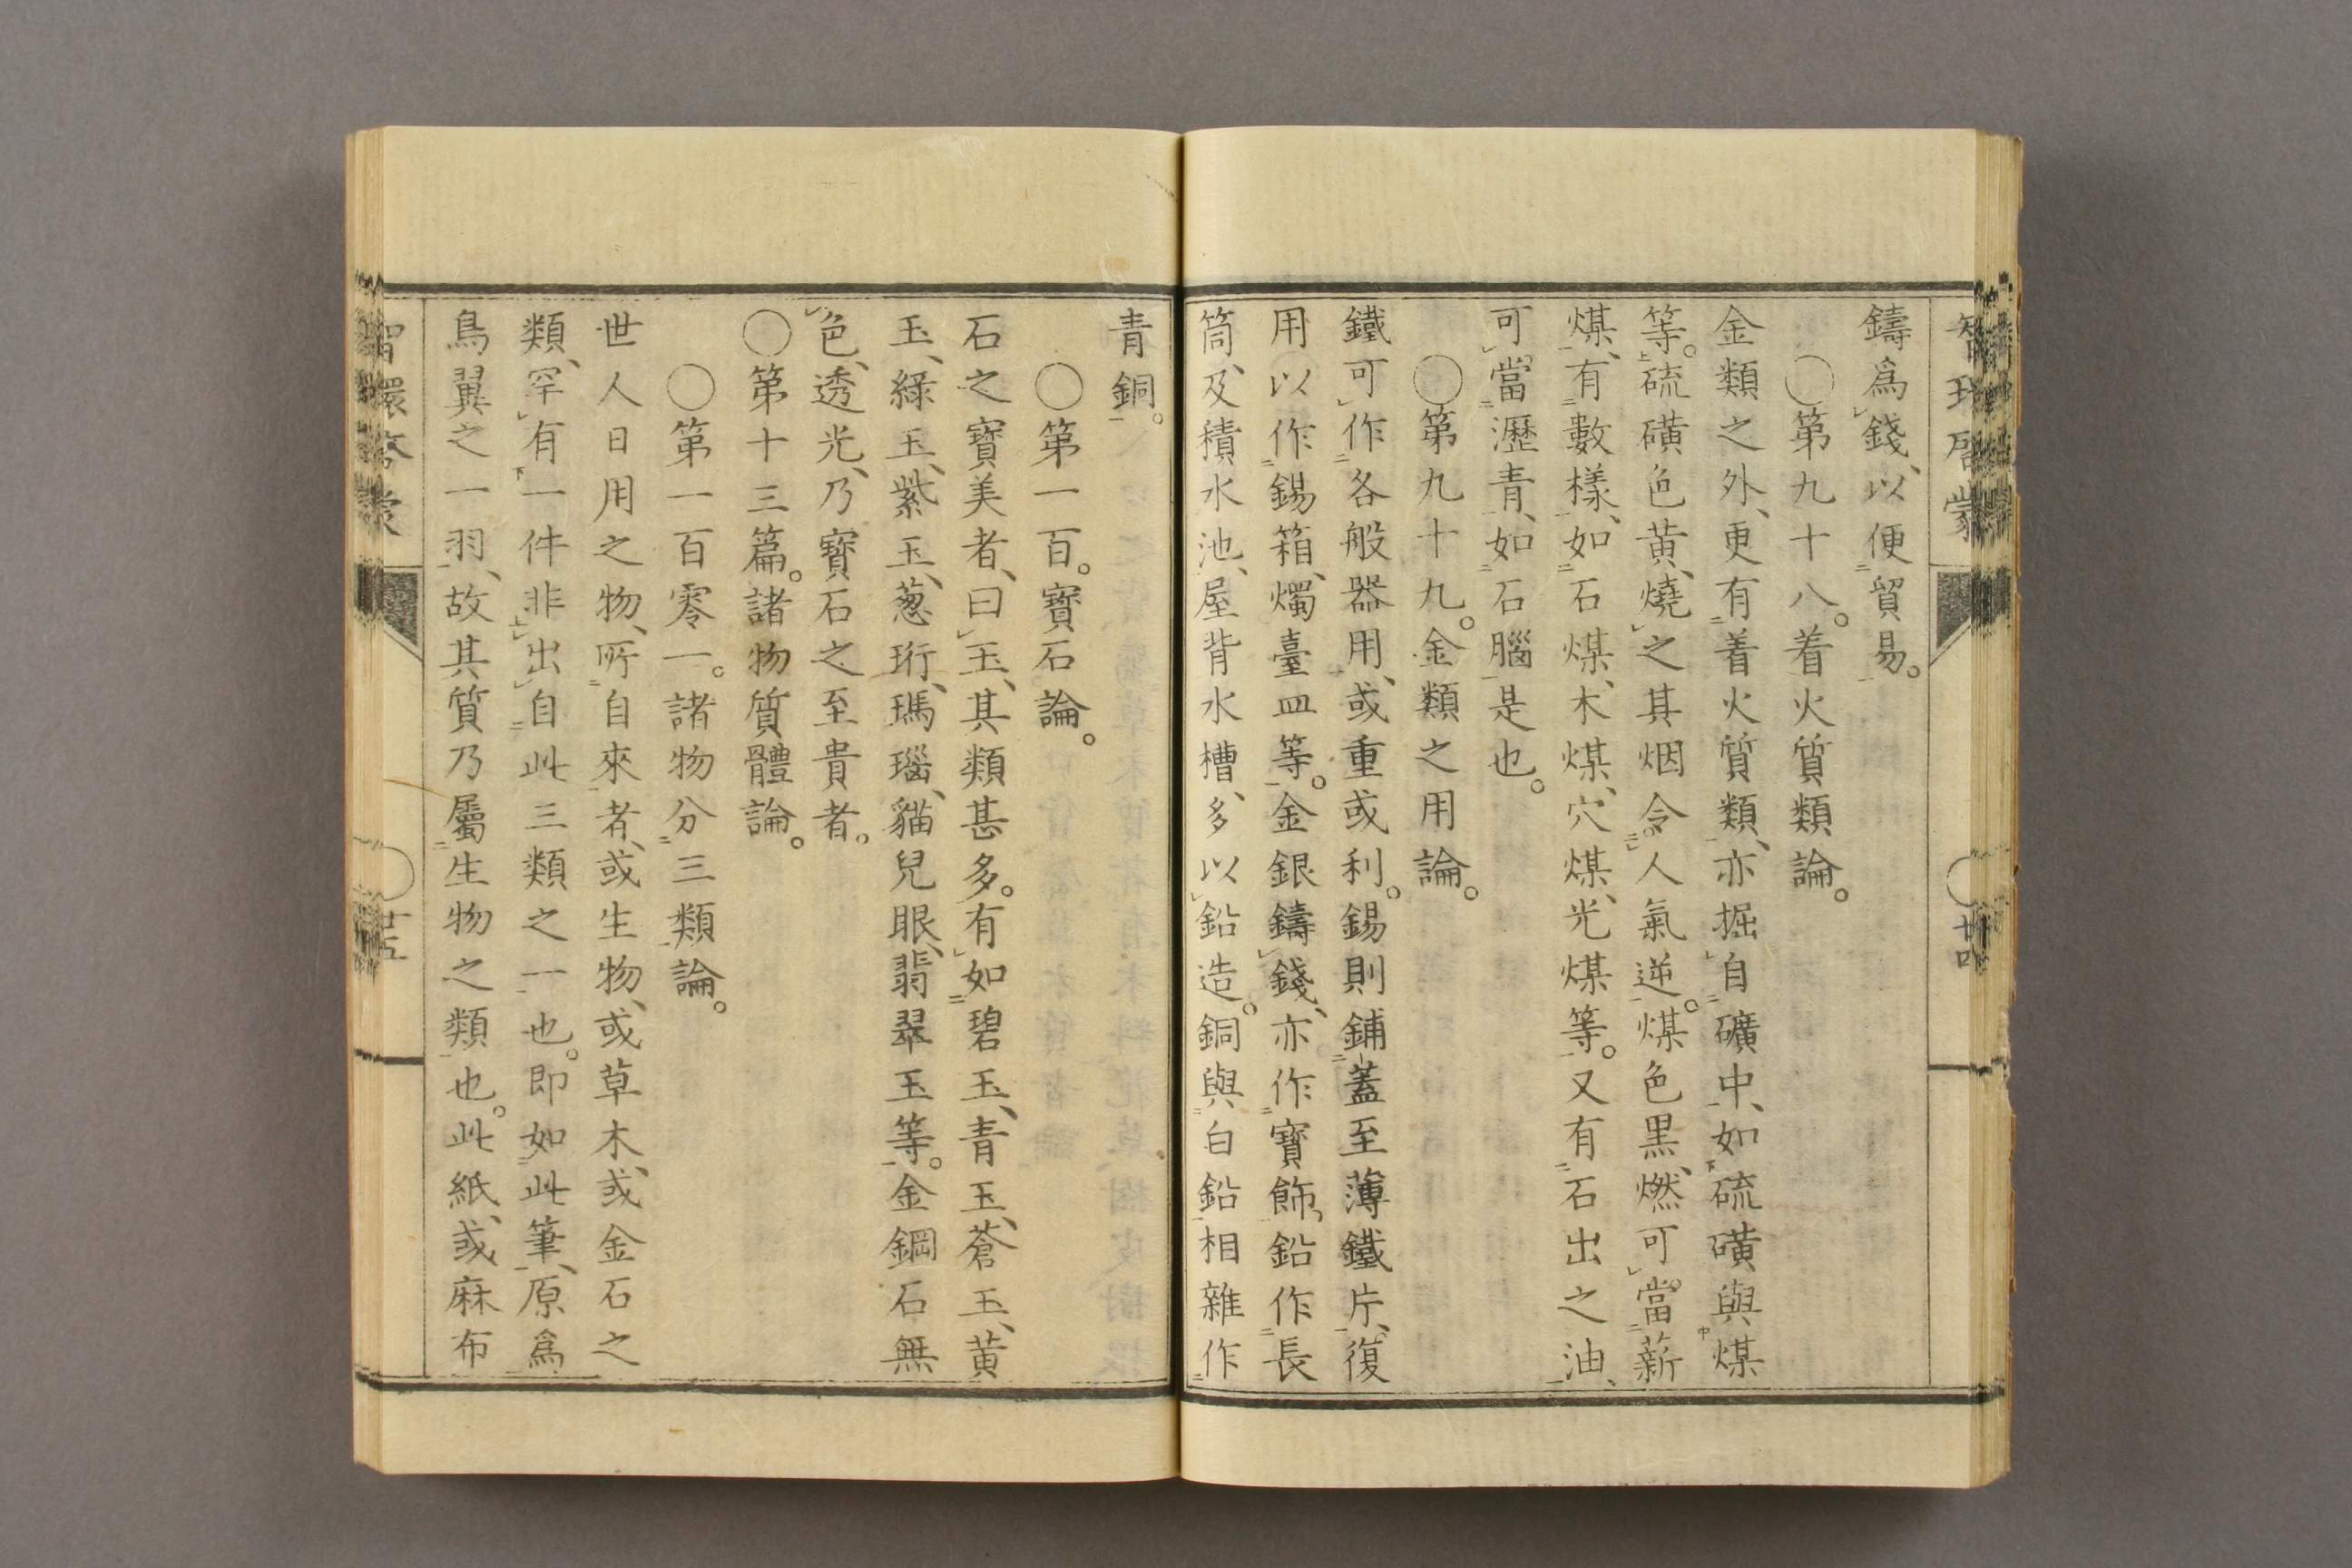 鑄爲錢、以便貿易。
○第九十八。着火質類論。
金類之外、更有着火質類、亦掘自礦中、如硫磺與煤
等。硫磺色黃、燒之其烟令人氣逆。煤色黑、燃可當薪
煤、有數樣、如石煤、木煤、穴煤、光煤等。又有石出之油、
可當瀝青、如石腦是也。
○第九十九。金類之用論。
鐵可作各般器用、或重或利。錫則鋪蓋至薄鐵片、復
用以作錫箱、燭臺皿等。金銀鑄錢、亦作寶飾、鉛作長
筒、及積水池、屋背水槽、多以鉛造。銅與白鉛相雜作
青銅。
○第一百。寶石論。
石之寶美者、曰玉、其類甚多。有如碧玉、青玉、蒼玉、黃
玉、綠玉、紫玉、葱珩、瑪瑙、貓兒眼、翡翠玉等。金鋼石無
色、透光、乃寶石之至貴者。
○第十三篇。諸物質體論。
○第一百零一。諸物分三類論。
世人日用之物、所自來者、或生物、或草木、或金石之
類、罕有一件非出自此三類之一也。即如此筆、原爲
鳥翼之一羽、故其質乃屬生物之類也。此紙、或麻布
智環啓蒙
○廿五